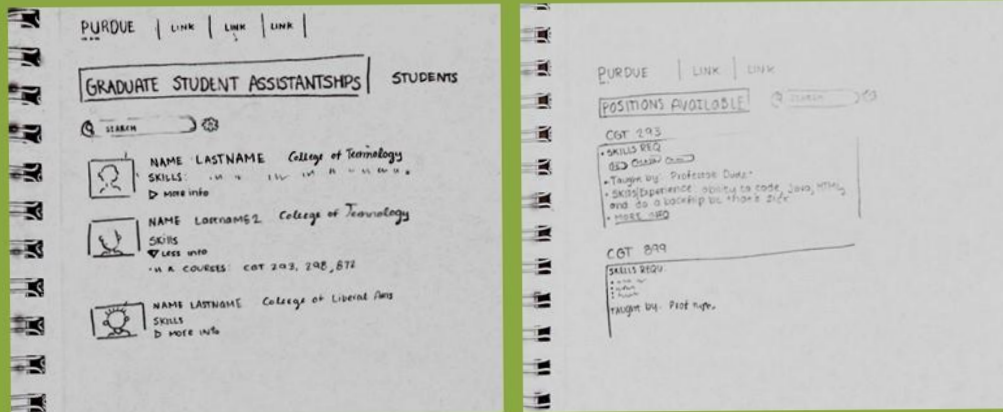 PURDUE | LINK | LINK | LINK |
GRADUATE STUDENT ASSISTANTSHIPS STUDENTS
SEARCH
NAME LASTNAME College of Technology
SKILLS:
▷ More info
NAME Lastname2 College of Technology
SKILLS
▽ Less info
COURSES: CGT 293, 298, 872
NAME LASTNAME College of Liberal Arts
SKILLS
▷ MORE INFO
PURDUE | LINK | LINK
POSITIONS AVAILABLE
SEARCH
CGT 293
• SKILLS REQ
• Taught by: Professor
• Skills/Experience: ability to code, Java, HTML,
and do a backflip bc that's
• MORE INFO
CGT 899
SKILLS REQU:
Taught by: Prof